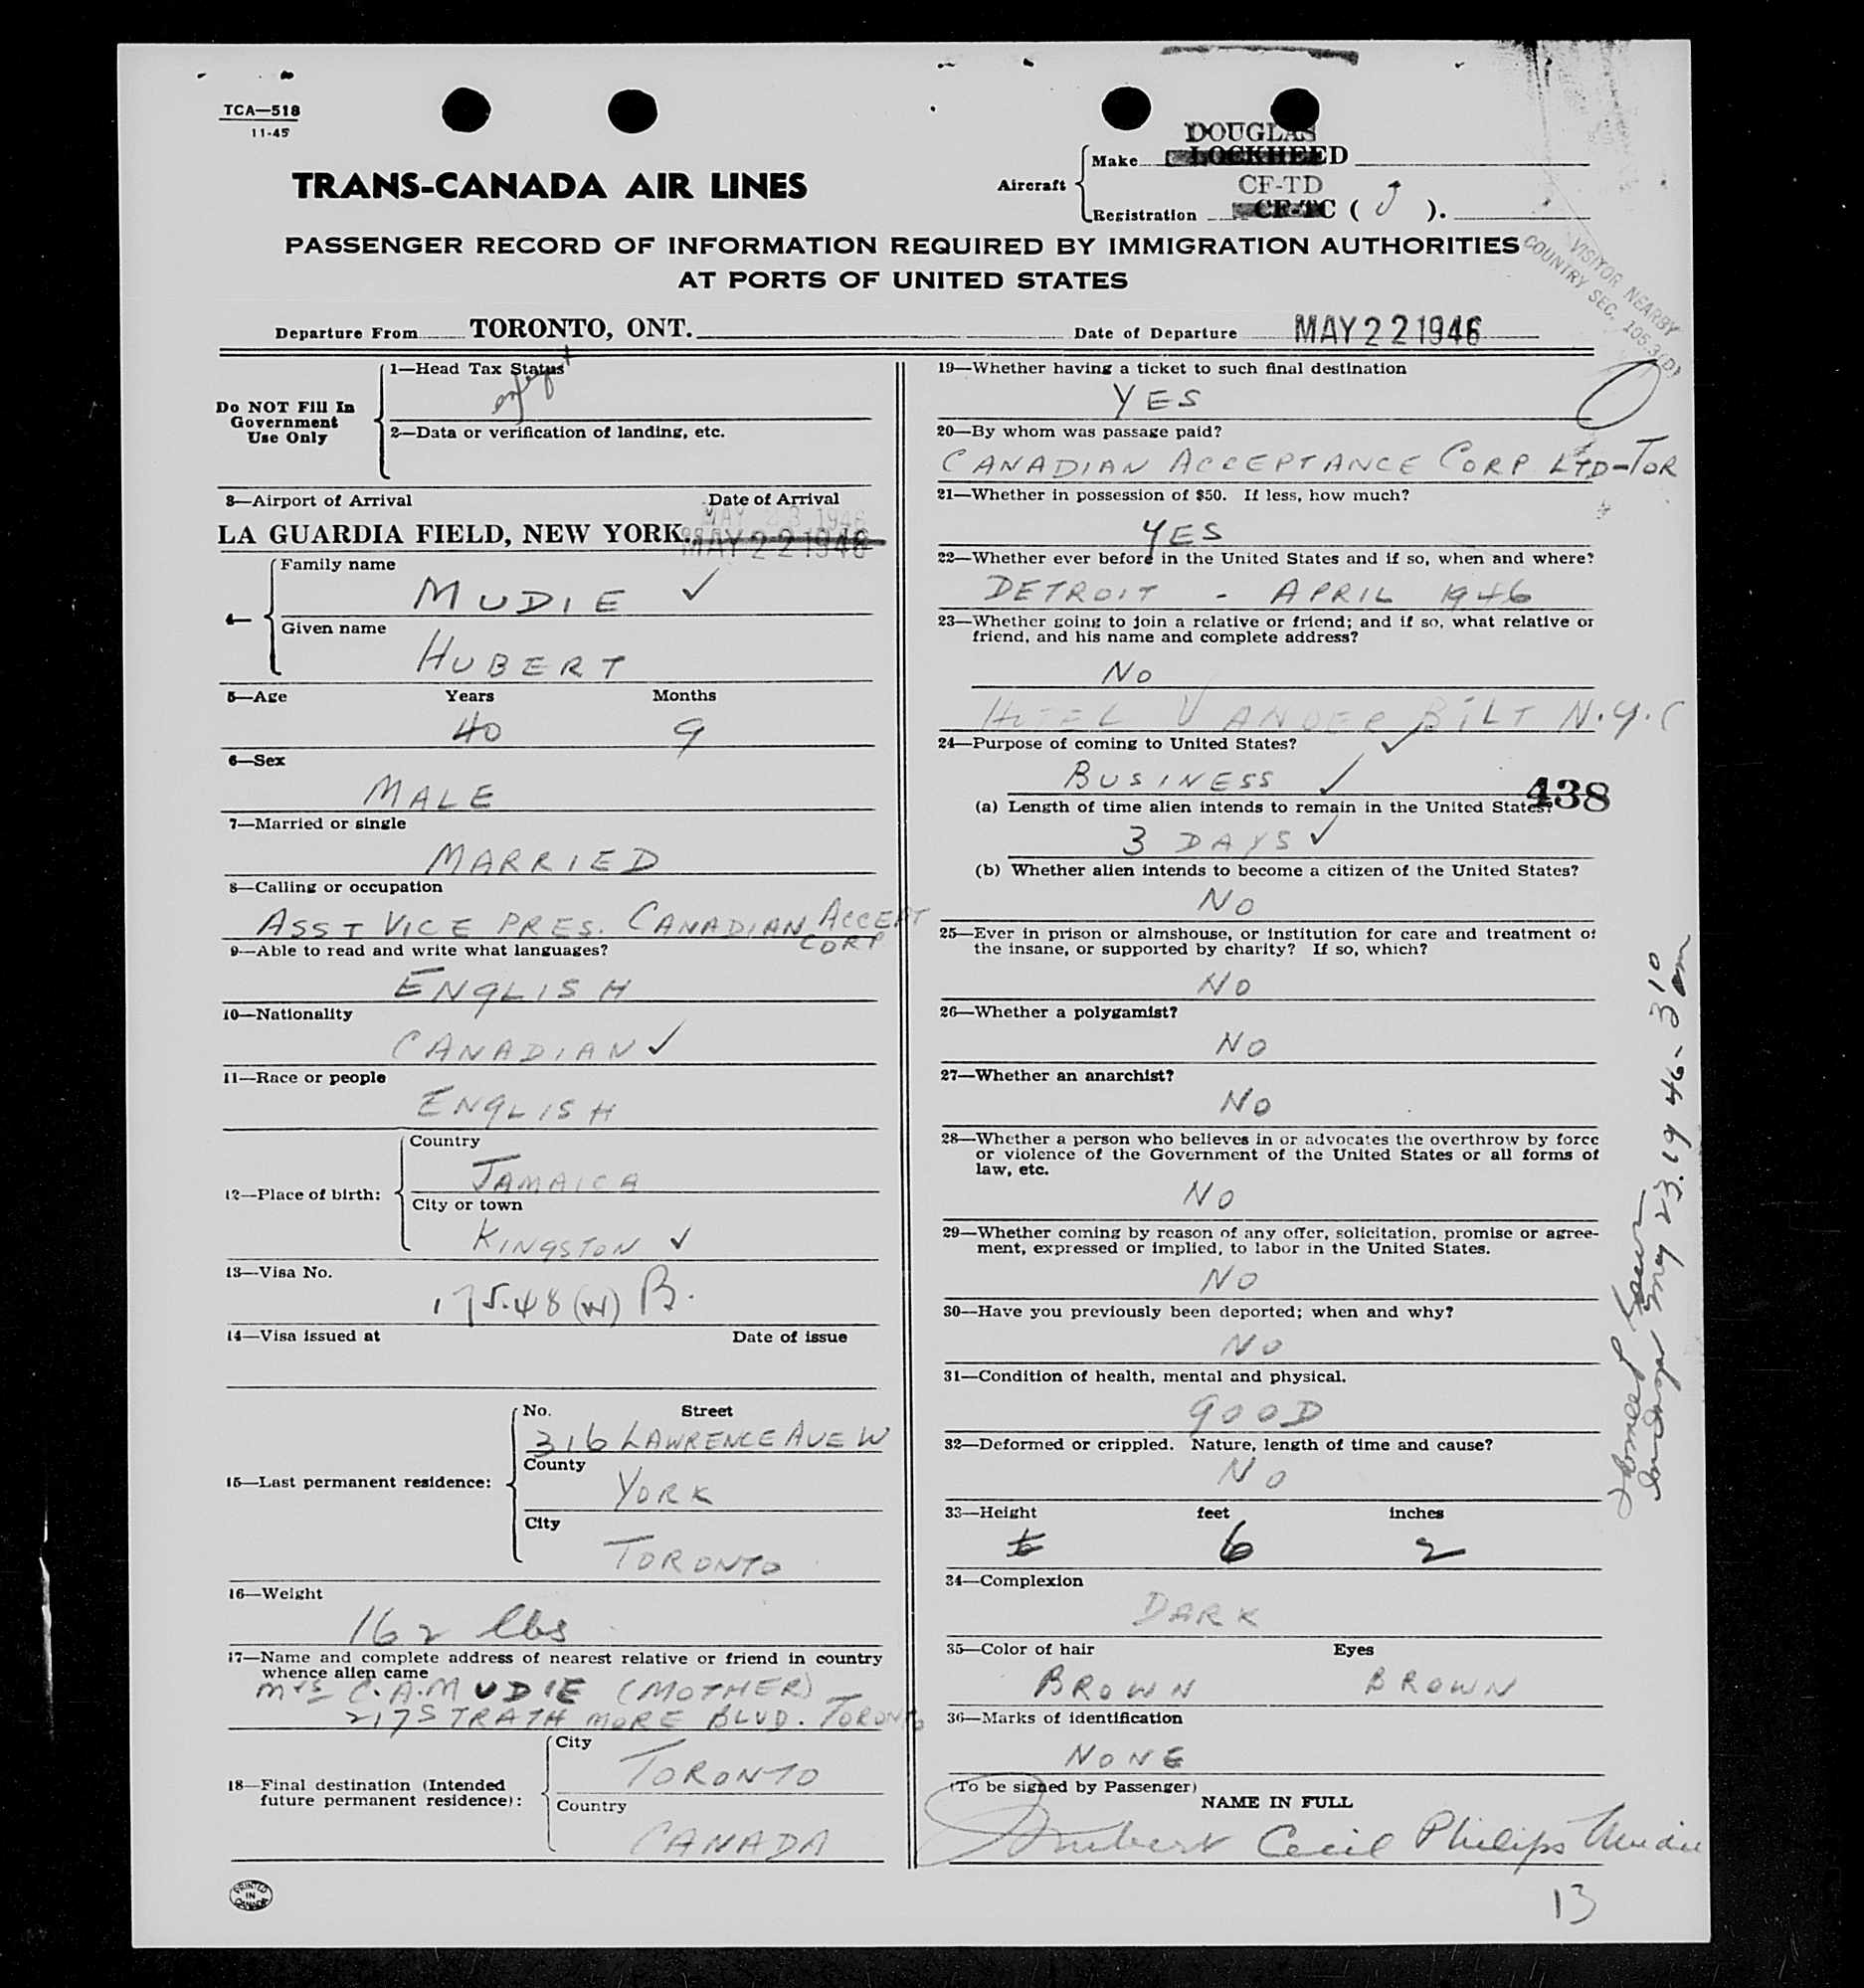 TCA—518
11-45
TRANS-CANADA AIR LINES
Aircraft
Make
DOUGLAS
LOCKHEED
Registration
CF-TD
CF-TC ( J ).
PASSENGER RECORD OF INFORMATION REQUIRED BY IMMIGRATION AUTHORITIES
AT PORTS OF UNITED STATES
VISITOR NEARBY
COUNTRY SEC. 105.3(D)
Departure From TORONTO, ONT.
Date of Departure MAY 22 1946
Do NOT Fill In
Government
Use Only
1—Head Tax Status
2—Data or verification of landing, etc.
3—Airport of Arrival
Date of Arrival
MAY 23 1946
LA GUARDIA FIELD, NEW YORK.
MAY 22 1946
4—
Family name
MUDIE ✓
Given name
HUBERT
5—Age Years Months
40 9
6—Sex
MALE
7—Married or single
MARRIED
8—Calling or occupation
ASST VICE PRES. CANADIAN ACCEPT
CORP
9—Able to read and write what languages?
ENGLISH
10—Nationality
CANADIAN ✓
11—Race or people
ENGLISH
12—Place of birth:
Country
JAMAICA
City or town
KINGSTON ✓
13—Visa No.
17548 (W) B.
14—Visa issued at Date of issue
15—Last permanent residence:
No. Street
316 LAWRENCE AVE W
County
YORK
City
TORONTO
16—Weight
162 lbs
17—Name and complete address of nearest relative or friend in country
whence alien came
Mrs C.A. MUDIE (MOTHER)
217 STRATHMORE BLVD. TORONTO
18—Final destination (Intended
future permanent residence):
City
TORONTO
Country
CANADA
PRINTED
IN
CANADA
19—Whether having a ticket to such final destination
YES
20—By whom was passage paid?
CANADIAN ACCEPTANCE CORP LTD-TOR
21—Whether in possession of $50. If less, how much?
YES
22—Whether ever before in the United States and if so, when and where?
DETROIT - APRIL 1946
23—Whether going to join a relative or friend; and if so, what relative or
friend, and his name and complete address?
NO
HOTEL VANDERBILT N.Y.C
24—Purpose of coming to United States?
BUSINESS ✓
438
(a) Length of time alien intends to remain in the United States?
3 DAYS ✓
(b) Whether alien intends to become a citizen of the United States?
NO
25—Ever in prison or almshouse, or institution for care and treatment of
the insane, or supported by charity? If so, which?
NO
26—Whether a polygamist?
NO
27—Whether an anarchist?
NO
28—Whether a person who believes in or advocates the overthrow by force
or violence of the Government of the United States or all forms of
law, etc.
NO
29—Whether coming by reason of any offer, solicitation, promise or agree-
ment, expressed or implied, to labor in the United States.
NO
30—Have you previously been deported; when and why?
NO
31—Condition of health, mental and physical.
GOOD
32—Deformed or crippled. Nature, length of time and cause?
NO
33—Height feet inches
6 2
34—Complexion
DARK
35—Color of hair Eyes
BROWN BROWN
36—Marks of identification
NONE
(To be signed by Passenger)
NAME IN FULL
Hubert Cecil Philips Mudie
13
May 23. 1946 - 3 10 am